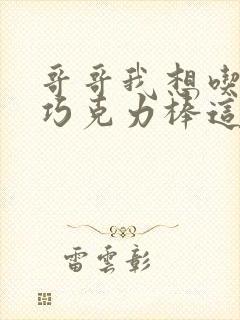 哥哥我想喫
巧克力棒這
雷雲彰